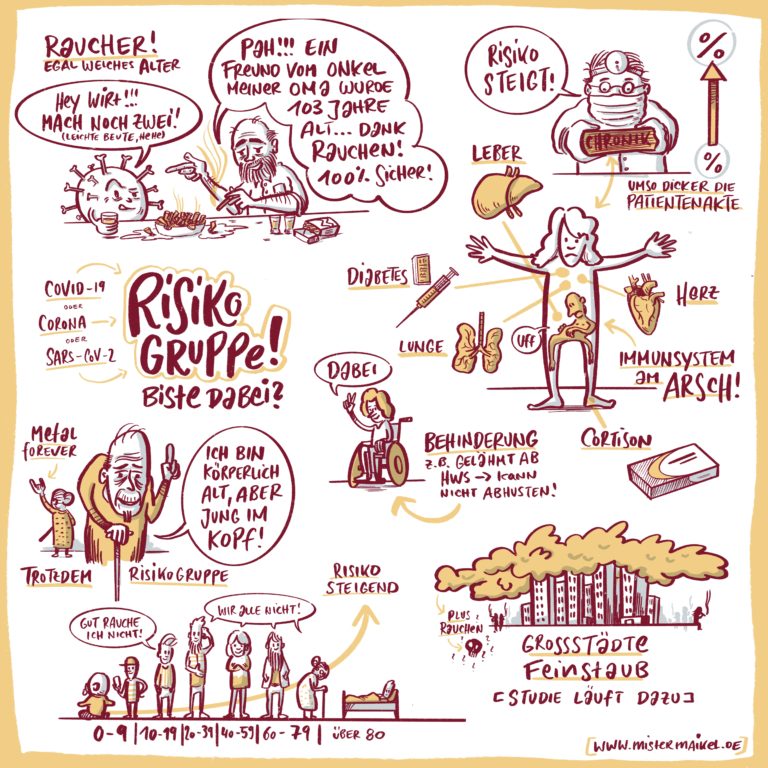 RAUCHER!
EGAL WELCHES ALTER
HEY WIRT!!!
MACH NOCH ZWEI!
(LEICHTE BEUTE, HEHE)
PAH!!! EIN
FREUND VOM ONKEL
MEINER OMA WURDE
103 JAHRE
ALT... DANK
RAUCHEN!
100% SICHER!
RISIKO
STEIGT!
CHRONIK
%
%
UMSO DICKER DIE
PATIENTENAKTE
LEBER
DIABETES
LUNGE
HERZ
UFF
IMMUNSYSTEM
AM ARSCH!
CORTISON
COVID-19
ODER
CORONA
ODER
SARS-COV-2
RISIKO
GRUPPE!
BISTE DABEI?
DABEI
BEHINDERUNG
Z.B. GELÄHMT AB
HWS → KANN
NICHT ABHUSTEN!
METAL
FOREVER
ICH BIN
KÖRPERLICH
ALT, ABER
JUNG IM
KOPF!
TROTZDEM RISIKOGRUPPE
RISIKO
STEIGEND
GUT RAUCHE
ICH NICHT!
WIR ALLE NICHT!
0-9 | 10-19 | 20-39 | 40-59 | 60-79 | ÜBER 80
PLUS
RAUCHEN
GROSSSTÄDTE
FEINSTAUB
[STUDIE LÄUFT DAZU]
[WWW.MISTERMAIKEL.DE]